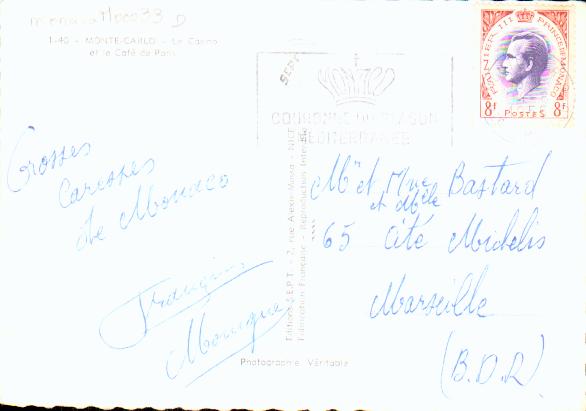 monaco 710033 D
1-40 - MONTE-CARLO - Le Casino
et le Café de Paris
SEPT
RAINIER III PRINCE DE MONACO
8f POSTES 8f
COURONNE DU BLASON
MEDITERRANEE
Grosses
caresses
de Monaco
Francis
Monique
Editions S.E.P.T. - 7, rue Alexis Mossa - NICE
Fabrication Française - Reproduction Interdite
Mr et Mme Bastard
et Melle
65 cité Michelis
Marseille
(B.D.R)
Photographie Véritable